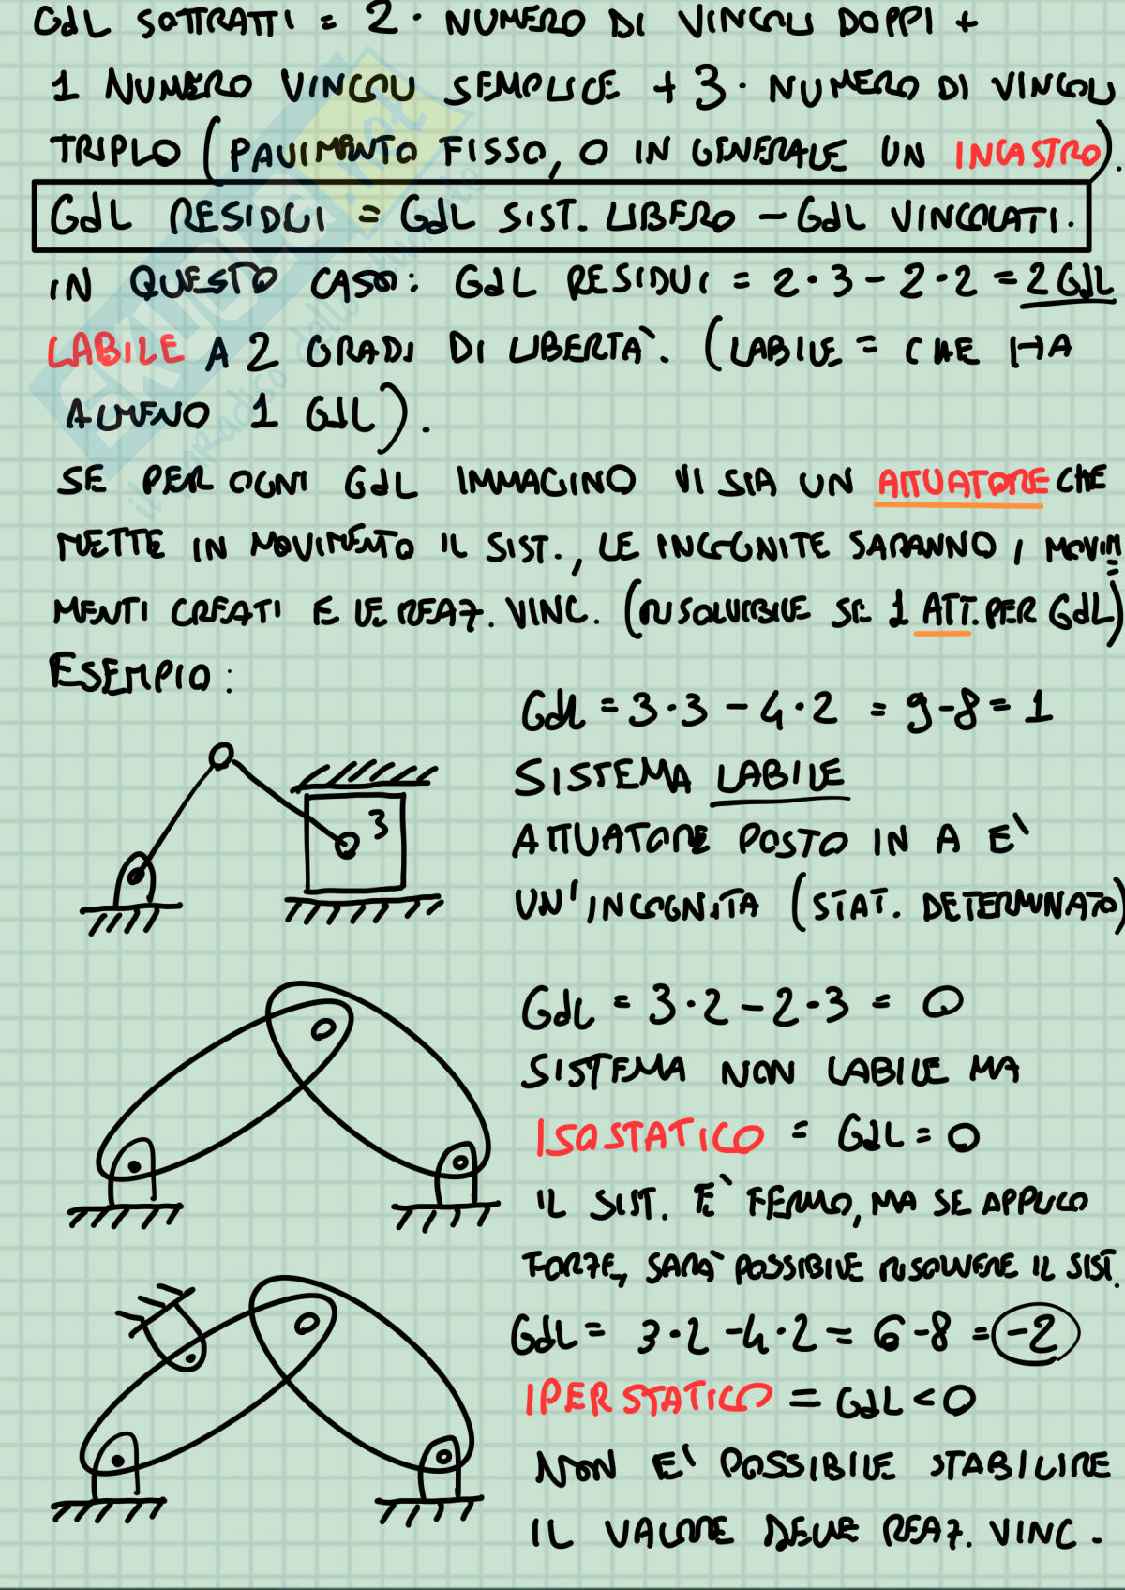 GdL SOTTRATTI = 2 · NUMERO DI VINCOLI DOPPI +
1 NUMERO VINCOLI SEMPLICE + 3 · NUMERO DI VINCOLI
TRIPLO (PAVIMENTO FISSO, O IN GENERALE UN INCASTRO).
GdL RESIDUI = GdL SIST. LIBERO - GdL VINCOLATI.
IN QUESTO CASO: GdL RESIDUI = 2·3 - 2·2 = 2 GdL
LABILE A 2 GRADI DI LIBERTÀ. (LABILE = CHE HA
ALMENO 1 GdL).
SE PER OGNI GdL IMMAGINO VI SIA UN ATTUATORE CHE
METTE IN MOVIMENTO IL SIST., LE INCOGNITE SARANNO I MOVIM
MENTI CREATI E LE REAZ. VINC. (RISOLVIBILE SE 1 ATT. PER GdL)
ESEMPIO:
GdL = 3·3 - 4·2 = 9-8 = 1
SISTEMA LABILE
3
ATTUATORE POSTO IN A È
UN'INCOGNITA (STAT. DETERMINATO)
GdL = 3·2 - 2·3 = 0
SISTEMA NON LABILE MA
ISOSTATICO = GdL = 0
IL SIST. È FERMO, MA SE APPLICO
FORZE, SARÀ POSSIBILE RISOLVERE IL SIST.
GdL = 3·2 - 4·2 = 6-8 = -2
IPERSTATICO = GdL < 0
NON È POSSIBILE STABILIRE
IL VALORE DELLE REAZ. VINC.